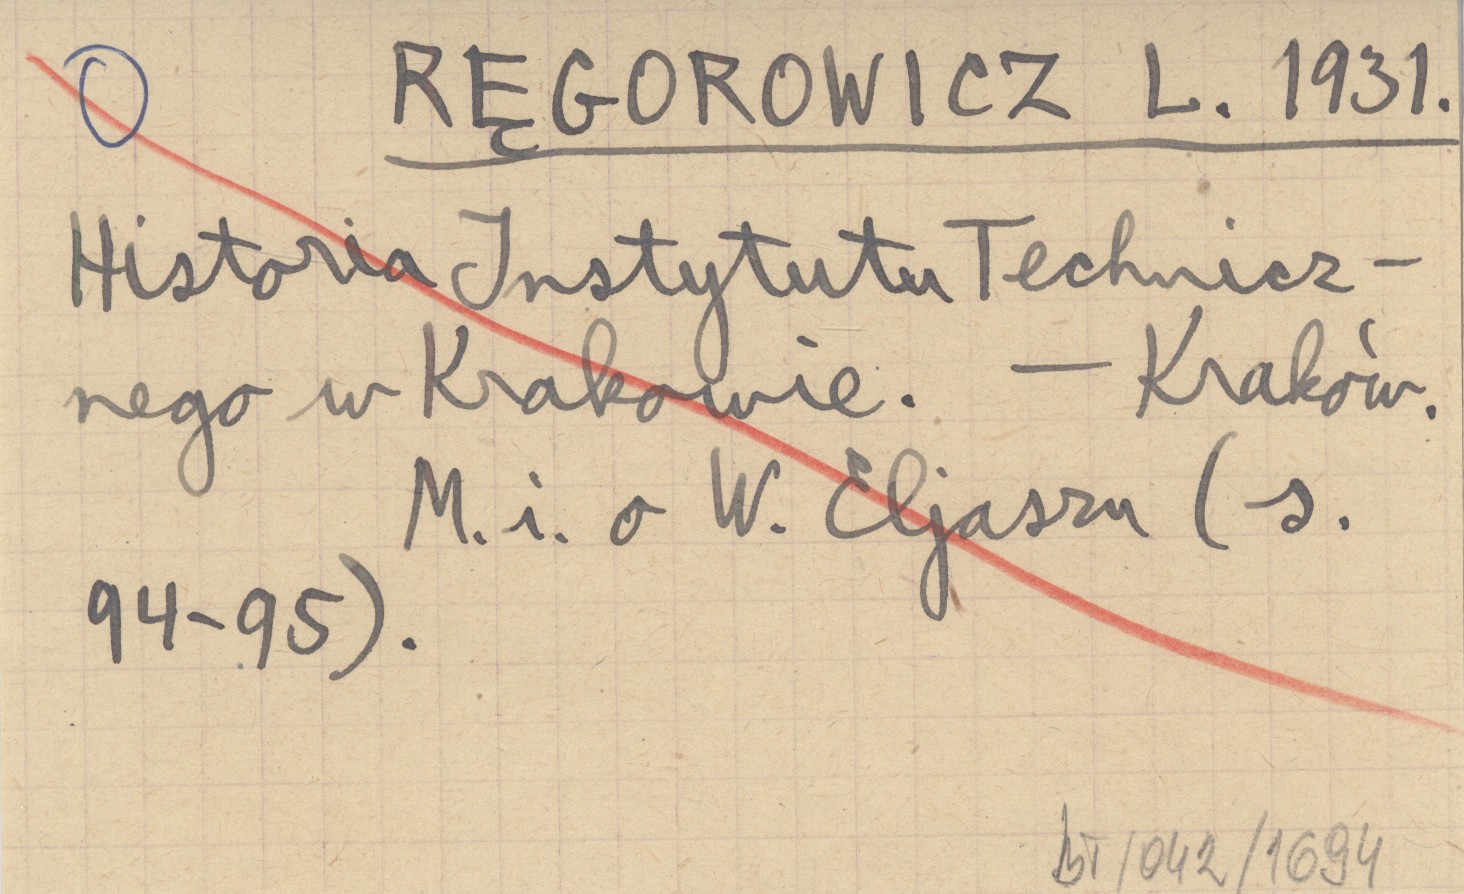 RĘGOROWICZ L. 1931.
Historia Instytutu Technicz-
nego w Krakowie. — Kraków.
M. i. o W. Eljaszu (s.
94-95).
BT/042/1694